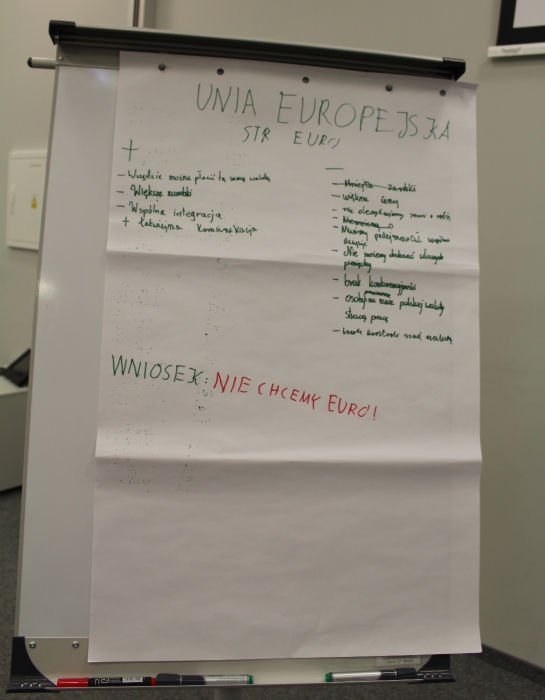 UNIA EUROPEJSKA
STR EURO
+
- Wszędzie można płacić tą samą walutą
- Większe zarobki
- Wspólna integracja
+ łatwiejsza komunikacja
—
- zarobki
- większe ceny
- nie
- Musimy podejmować wspólne
- Nie możemy drukować własnych
pieniędzy
- brak konkurencyjności
- osoby na rzecz polskiej waluty
stracą pracę
- brak kontroli nad walutą
WNIOSEK: NIE CHCEMY EURO!